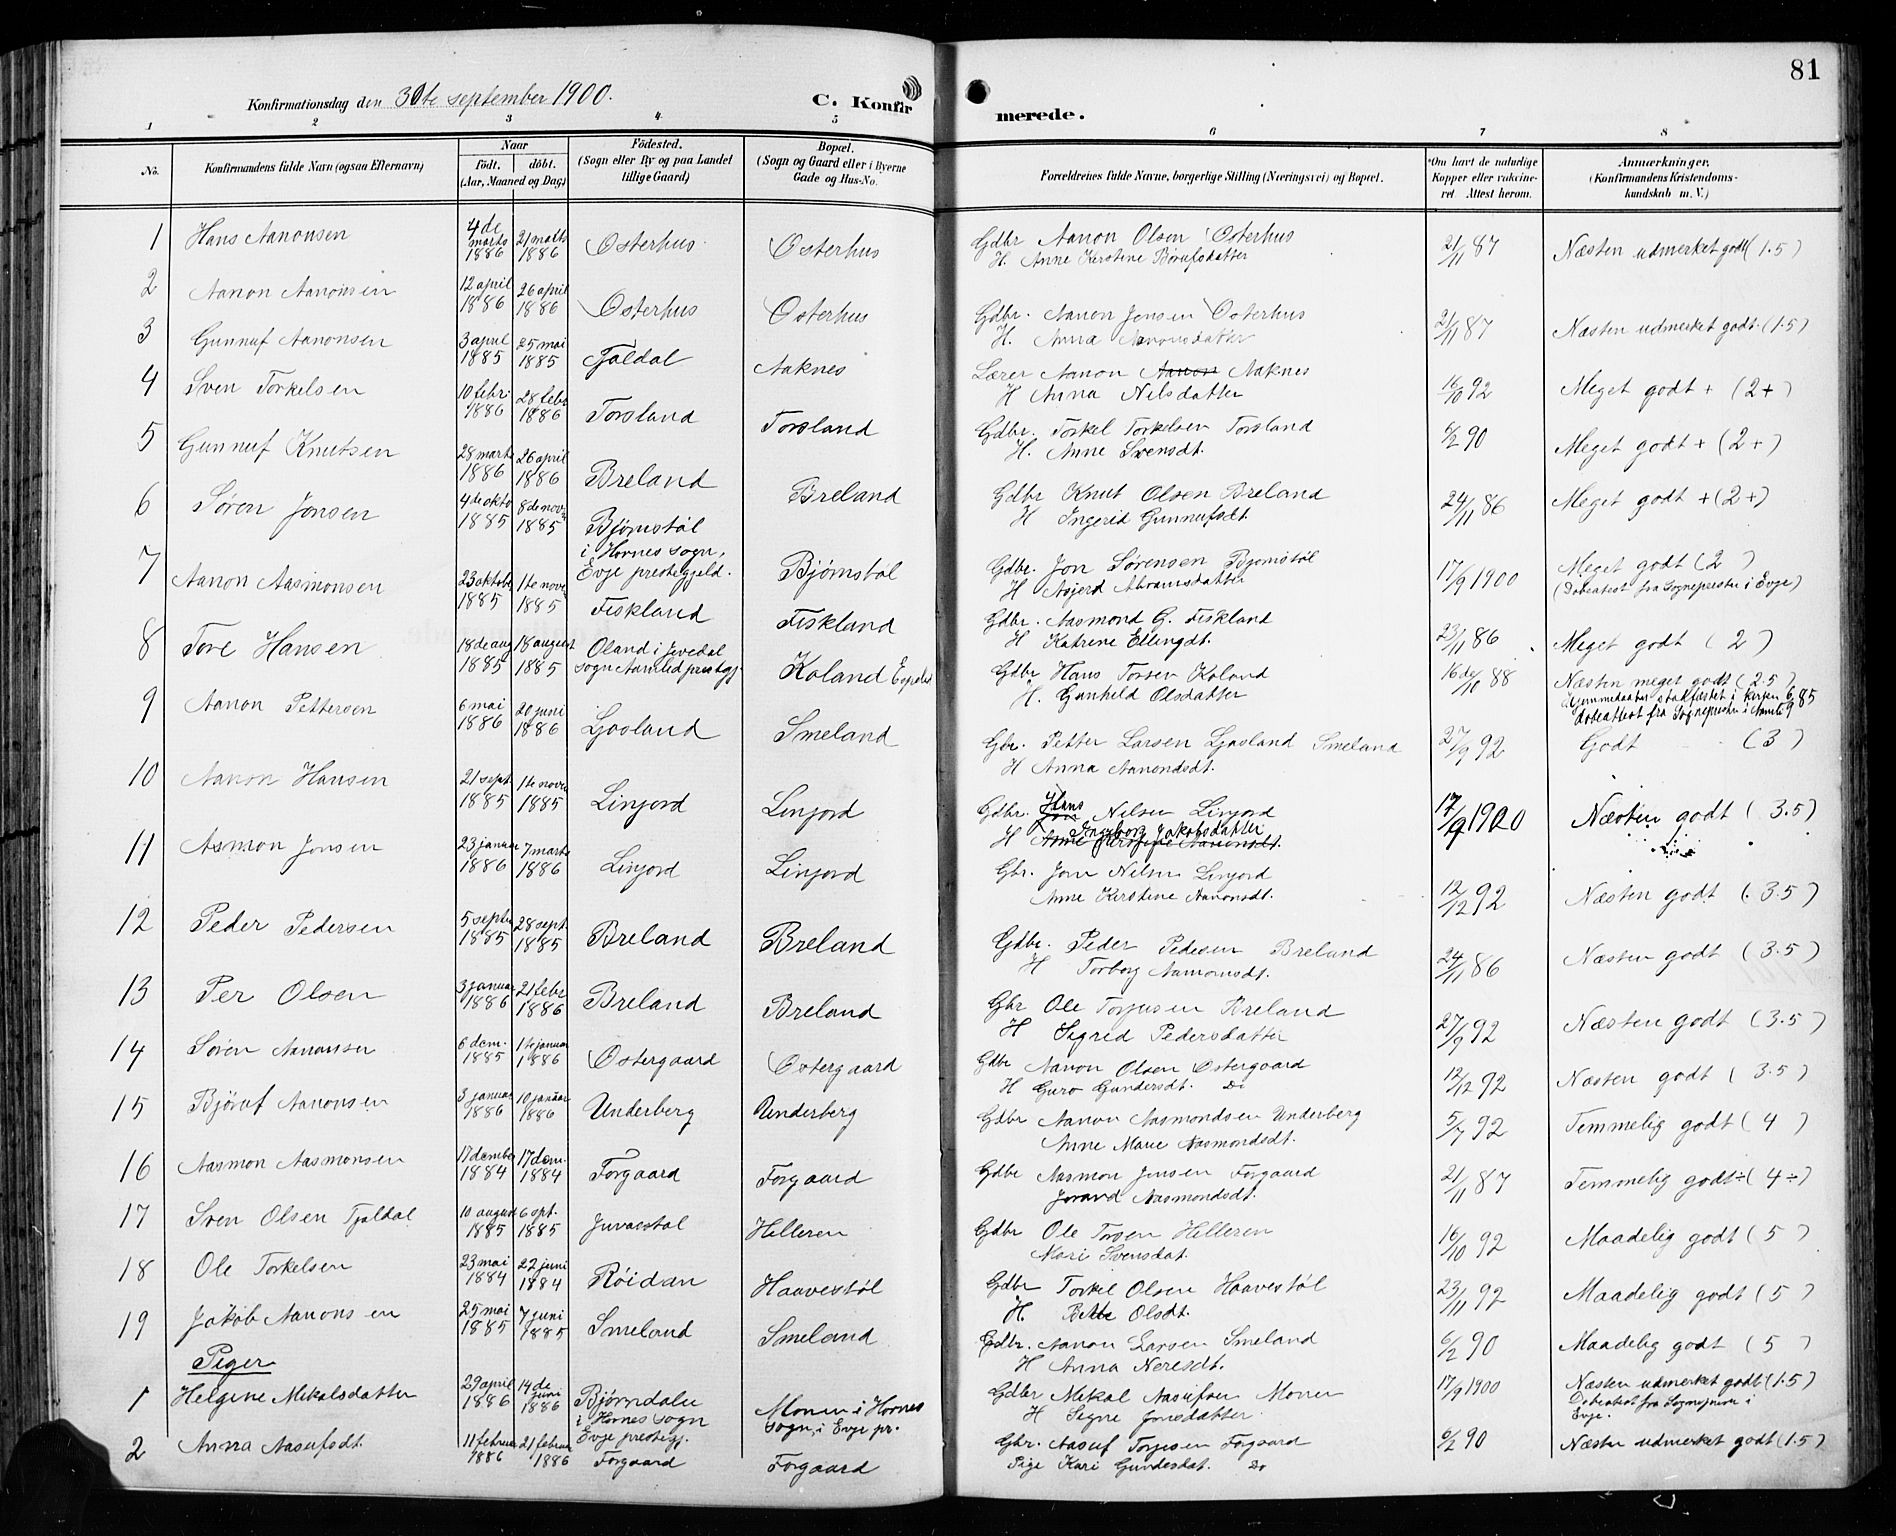 81
Konfirmationsdag den 30te september 1900.
C. Konfirmerede.
1 2 3 4 5 6 7 8
No.
Konfirmandens fulde Navn (ogsaa Efternavn)
Naar
födt. döbt.
(Aar, Maaned og Dag)
Födested.
(Sogn eller By og paa Landet
tillige Gaard)
Bopæl.
(Sogn og Gaard eller i Byerne
Gade og Hus-No.
Forældrenes fulde Navne, borgerlige Stilling (Næringsvei) og Bopæl.
Om havt de naturlige
Kopper eller vakcine-
ret Attest herom.
Anmærkninger.
(Konfirmandens Kristendoms-
kundskab m. V.)
1 Hans Aanonsen 4de marts 1886 21 marts 1886 Osterhus Osterhus Gdbr Aanon Olsen Osterhus 21/11 87 Næsten udmerket godt (1.5)
H. Anne Kirstine Børufsdatter
2 Aanon Aanonsen 12 april 1886 26 april 1886 Osterhus Osterhus Gdbr. Aanon Jensen Osterhus 21/11 87 Næsten udmerket godt. (1.5)
H. Anna Aanonsdatter
3 Gunnuf Aanonsen 3 april 1885 25 mai 1885 Tjaldal Aaknes Lærer Aanon Aanon Aaknes 16/10 92 Meget godt + (2+)
H Anna Nilsdatter
4 Sven Torkelsen 10 febr 1886 28 febr 1886 Torsland Torsland Gdbr. Torkel Torkelsen Torsland 6/2 90 Meget godt + (2+)
H. Anne Svensdt.
5 Gunnuf Knutsen 28 marts 1886 26 april 1886 Breland Breland Gdbr Knut Olsen Breland 24/11 86 Meget godt + (2+)
H Ingerid Gunnufsdt
6 Søren Jonsen 4de okto 1885 8de nov 1885 Bjørnstøl
i Hornes sogn,
Evje prestegjeld. Bjørnstøl Gdbr. Jon Sørensen Bjørnstøl 17/9 1900 Meget godt (2)
H Asjerd Abramsdatter (Dobeatest fra Sogneprestn i Evje)
7 Aanon Aasmonsen 23 oktobr 1885 1te nove 1885 Fiskland Fiskland Gdbr. Aasmond G. Fiskland 23/11 86 Meget godt (2)
H Katrine Ellingdt.
8 Tore Hansen 18 de aug 1885 18 august 1885 Oland i Jevedal
sogn Aamlid prestgj Koland Gdbr Hans Torsen Koland 16de/10 88 Næsten meget godt (2.5)
H. Gunheld Olsdatter
dobeattest fra Sogneprestn i Aamli
9 Aanon Pettersen 6 mai 1886 20 juni 1886 Ljosland Smeland Gbr. Petter Larsen Ljosland Smeland 27/9 92 Godt (3)
H Anna Aanondsdt.
10 Aanon Hansen 21 sept. 1885 1te nove 1885 Linjord Linjord Gdbr. Hans Nelsen Linjord 17/9 1900 Næsten godt (3.5)
H Ingeborg Jakobsdatter
11 Asmon Jonsen 23 januar 1886 7 marts 1886 Linjord Linjord Gbr. Jon Nelsen Linjord 12/12 92 Næsten godt (3.5)
Anne Kirstine Aanonsdt.
12 Peder Pedersen 5 septer 1885 28 sept. 1885 Breland Breland Gdbr. Peder Pedesen Breland 24/11 86 Næsten godt (3.5)
H Torborg Aamonsdt.
13 Per Olsen 3 januar 1886 21 febr 1886 Breland Breland Gbr Ole Torjusen Breland 27/9 92 Næsten godt (3.5)
H Sigrid Pedersdatter
14 Søren Aanonsen 6 dem. 1885 1te januar 1886 Østergaard Ostergaard Gdbr Aanon Olsen Østergaard 12/12 92 Næsten godt (3.5)
H Guro Gundersdt. Do
15 Bjøruf Aanonsen 3 januar 1886 10 januar 1886 Underberg Underberg Gdbr Aanon Aasmondsen Underberg 5/7 92 Temmelig godt (4)
Anne Marie Aasmondsdt.
16 Aasmon Aasmonsen 17 dember 1884 17 dem. 1884 Forgaard Forgaard Gdbr Aasmon Jensen Forgaard 21/11 87 Temmelig godt ÷ (4 ÷)
Jorand Aasmondsdt.
17 Sven Olsen Tjaldal 10 august 1885 6 spt. 1885 Juvasstøl Helleren Gdbr Ole Torsen Helleren 16/10 92 Maadelig godt (5)
Mari Svensdat.
18 Ole Torkelsen 23 mai 1884 22 juni 1884 Röidan Haavestøl Gdbr Torkel Olsen Haavestøl 23/11 92 Maadelig godt (5)
H. Olsdt.
19 Jakob Aanonsen 25 mai 1885 7 juni 1885 Smeland Smeland Gdbr. Aanon Larsen Smeland 6/2 90 Maadelig godt (5)
H Anna Neresdt.
Piger
1 Helgine Mikalsdatter 29 april 1886 14de juni 1886 Bjørndalen
i Hornes sogn
Evje prestegj. Monen i Hornes
sogn, i Evje pr. Gdbr Mikal Aasufsen Monen 17/9 1900 Næsten udmerket godt (1.5)
H Signe Jonsdatter Dobeatest fra Sogneprestn i
Evje.
2 Anna Aasufsdt. 11 februar 1886 21 februar 1886 Forgaard Forgaard Gbr. Aasuf Torjesen Forgaard 6/2 90 Næsten udmerket godt (1.5)
Pige Kari Gundesdat. Do